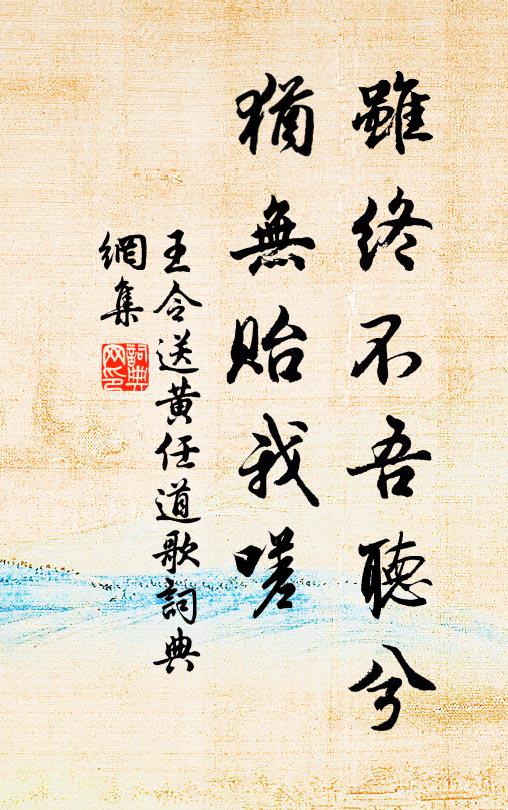 雖終不吾聽兮
猶無貽我嗟
王令送黄任道歌詞典
網集
詞典
网印